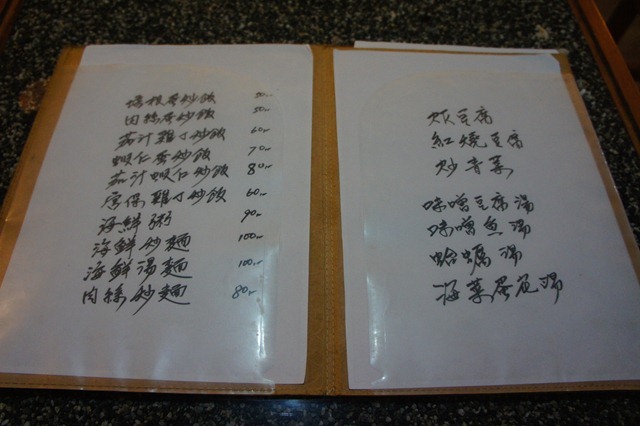 培根蛋炒飯 50.-
肉絲蛋炒飯 50.-
茄汁雞丁炒飯 60.-
蝦仁蛋炒飯 70.-
茄汁蝦仁炒飯 80.-
宮保雞丁炒飯 60.-
海鮮粥 90.-
海鮮炒麵 100.-
海鮮湯麵 100.-
肉絲炒麵 80.-
炸豆腐
紅燒豆腐
炒青菜
味噌豆腐湯
味噌魚湯
蛤蠣湯
海菜蛋花湯